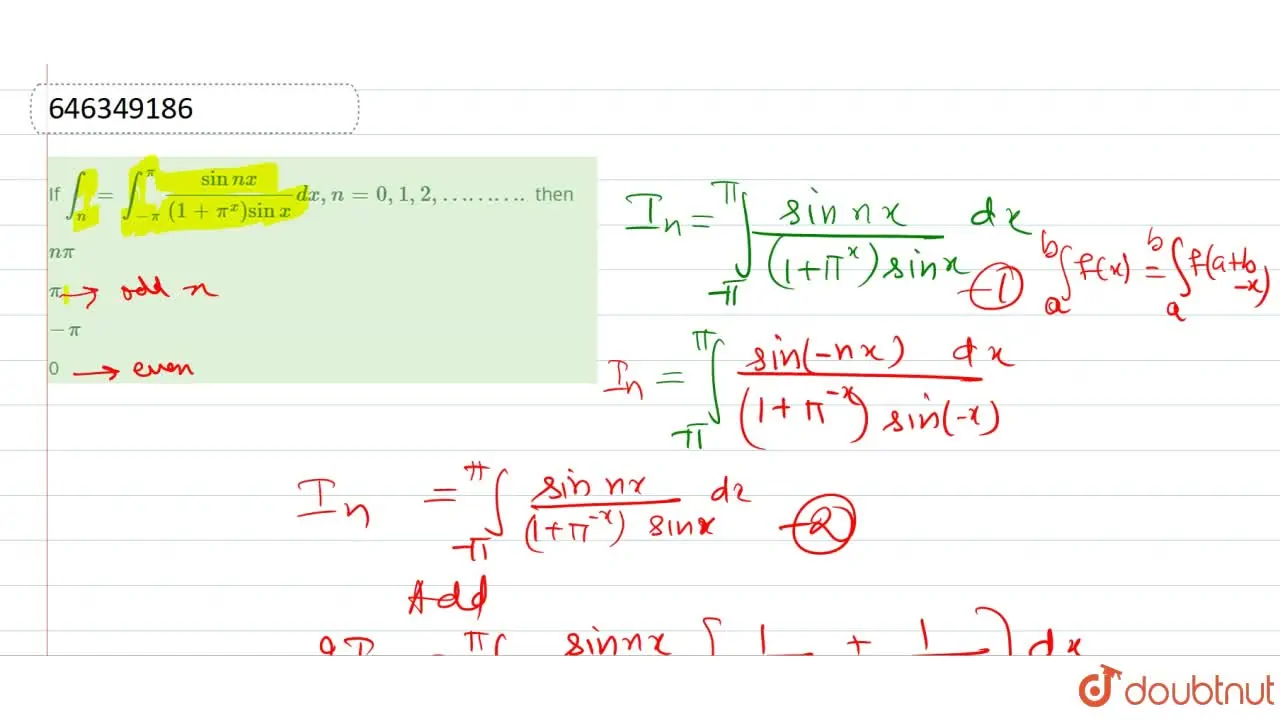 646349186
If ∫ₙ = ∫_{-π}^{π} sin nx / (1 + π^x) sin x dx, n = 0, 1, 2, ………. then
nπ
π → odd n
−π
0 → even
Iₙ = ∫_{-π}^{π} sin nx / (1+π^x) sin x dx —①
∫_a^b f(x) = ∫_a^b f(a+b-x)
Iₙ = ∫_{-π}^{π} sin(-nx) dx / (1+π^{-x}) sin(-x)
Iₙ = ∫_{-π}^{π} sin nx / (1+π^{-x}) sin x dx —②
Add
π sin nx [ 1 + 1 ] dx
doubtnut